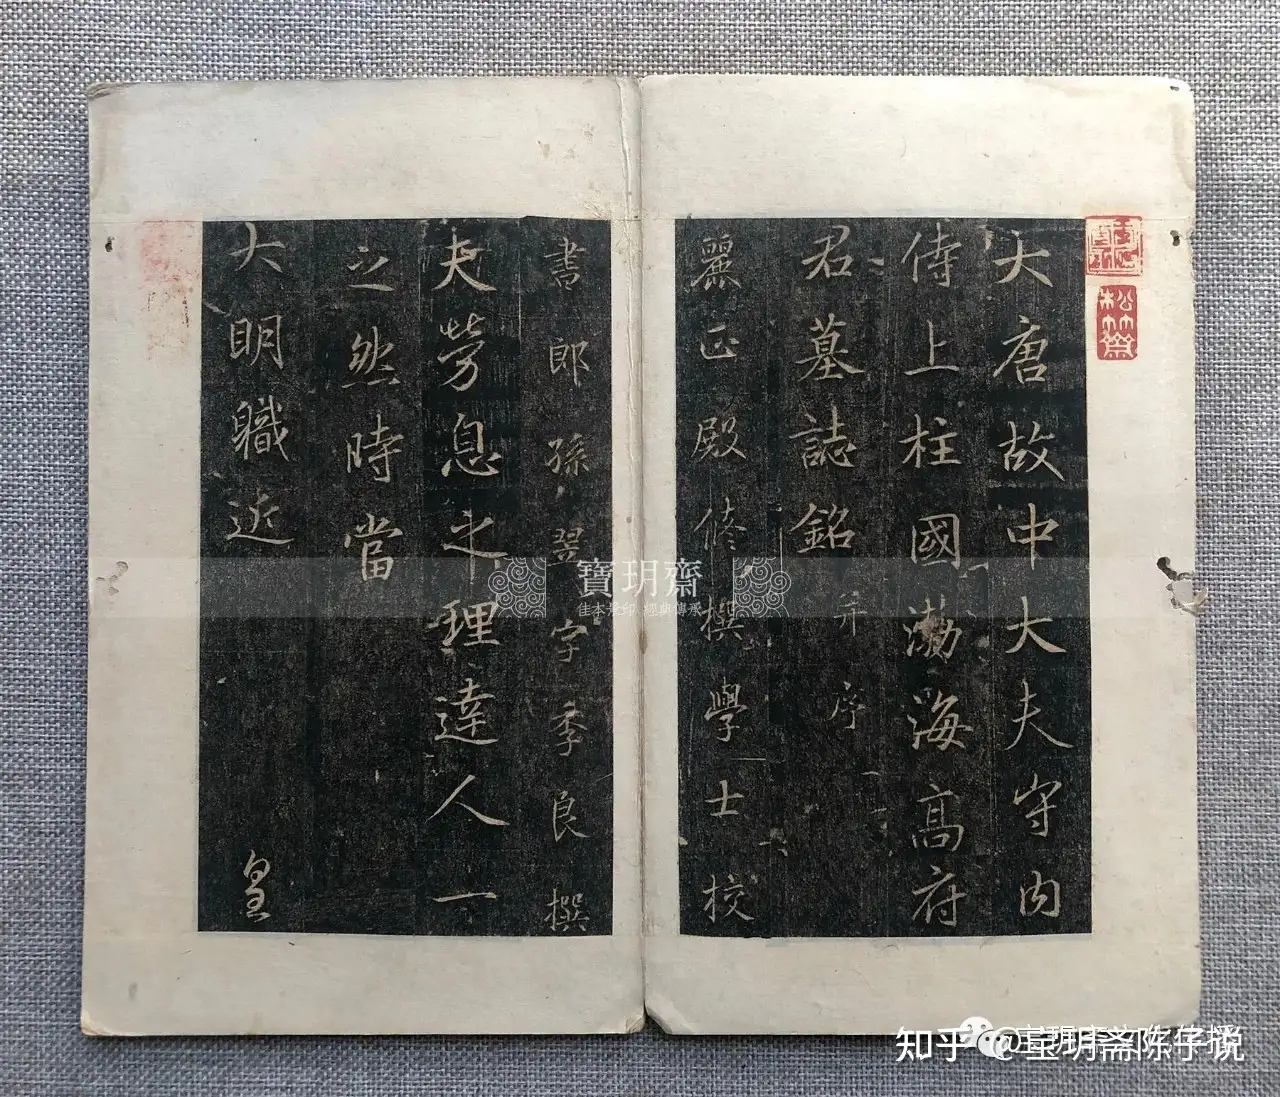 大唐故中大夫守内
侍上柱國渤海高府
君墓誌銘并序
麗正殿脩撰學士校
書郎孫翌字季良撰
夫勞息之理達人一
之然時當
大明職近
皇
松竹齋
寶玥齋
佳本景印 經典傳承
知乎 @宝玥斋陈仔说